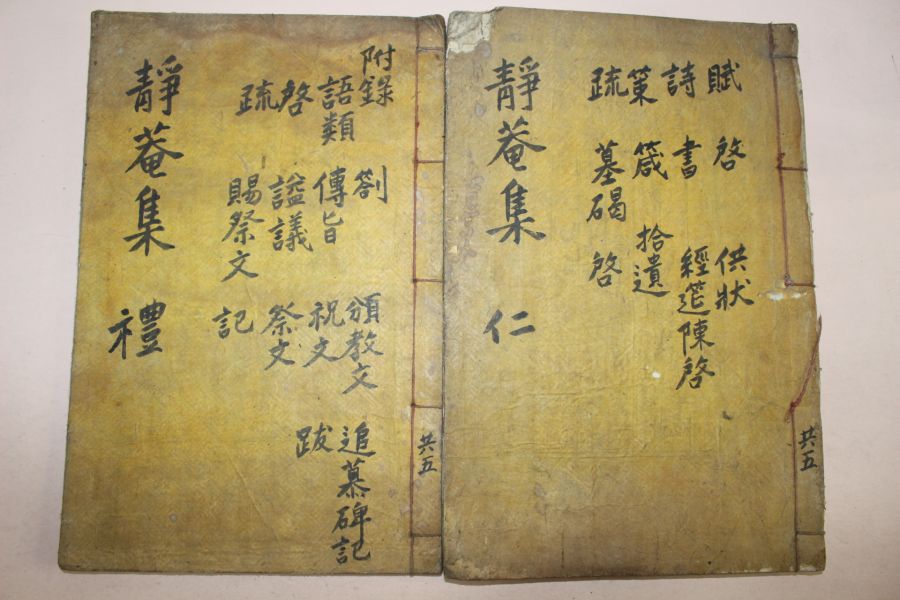 共五
賦 啓 供狀
詩 書 經筵陳啓
策 箴 拾遺
疏 墓碣 啓
靜菴集 仁
共五
附錄 劄 頒敎文 追慕碑記
語類 傳旨 祝文 跋
啓 謚議 祭文
疏 賜祭文 記
靜菴集 禮